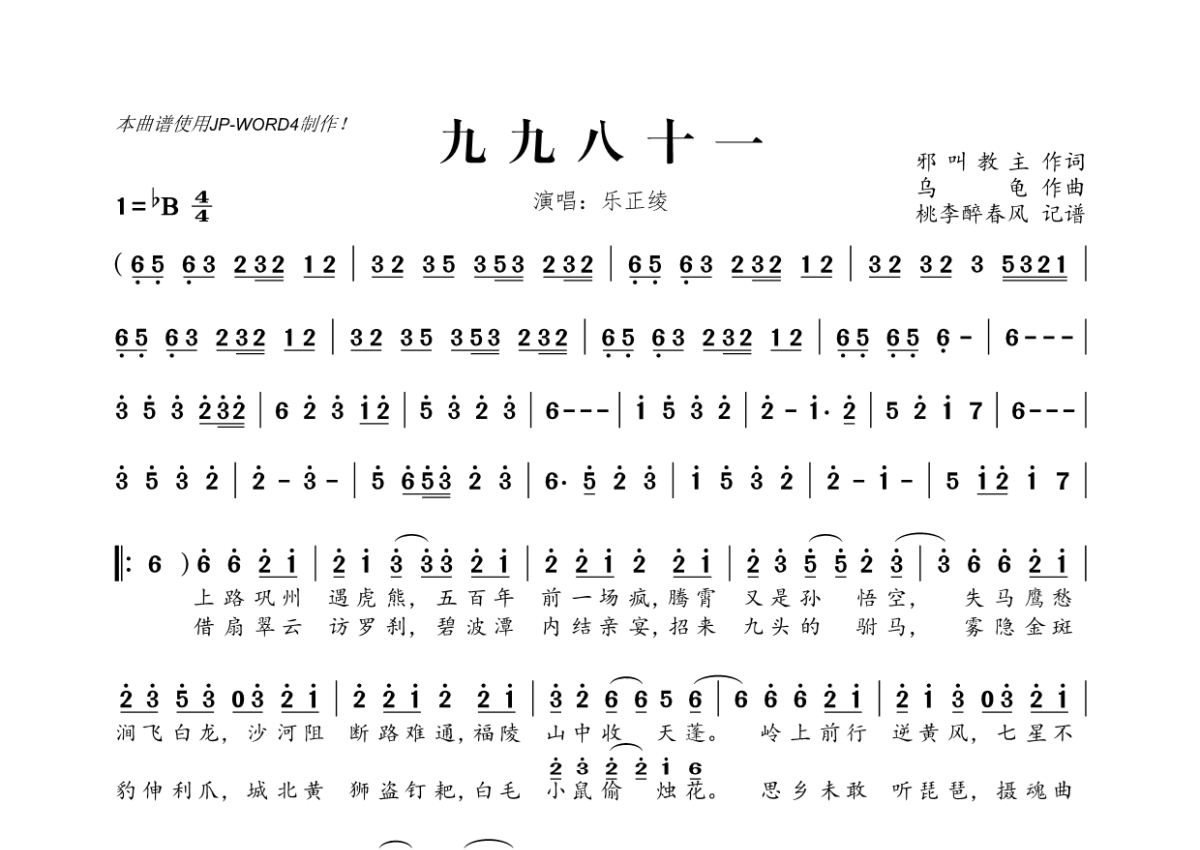 本曲谱使用JP-WORD4制作！
九九八十一
邪叫教主 作词
1=♭B 4/4
演唱：乐正绫
乌 龟 作曲
桃李醉春风 记谱
( 6 5 6 3 2 3 2 1 2 | 3 2 3 5 3 5 3 2 3 2 | 6 5 6 3 2 3 2 1 2 | 3 2 3 2 3 5 3 2 1 |
6 5 6 3 2 3 2 1 2 | 3 2 3 5 3 5 3 2 3 2 | 6 5 6 3 2 3 2 1 2 | 6 5 6 5 6 - | 6 - - - |
3 5 3 2 3 2 | 6 2 3 1 2 | 5 3 2 3 | 6 - - - | 1 5 3 2 | 2 - 1 · 2 | 5 2 1 7 | 6 - - - |
3 5 3 2 | 2 - 3 - | 5 6 5 3 2 3 | 6 · 5 2 3 | 1 5 3 2 | 2 - 1 - | 5 1 2 1 7 |
‖: 6 ) 6 6 2 1 | 2 1 3 3 3 2 1 | 2 2 1 2 2 1 | 2 3 5 5 2 3 | 3 6 6 2 1 |
上路巩州 遇虎熊，五百年 前一场疯，腾霄 又是孙 悟空， 失马鹰愁
借扇翠云 访罗刹，碧波潭 内结亲宴，招来 九头的 驸马， 雾隐金斑
2 3 5 3 0 3 2 1 | 2 2 1 2 2 1 | 3 2 6 6 5 6 | 6 6 6 2 1 | 2 1 3 0 3 2 1 |
涧飞白龙，沙河阻 断路难通，福陵 山中收 天蓬。 岭上前行 逆黄风，七星不
2 3 2 2 1 6
豹伸利爪，城北黄 狮盗钉耙，白毛 小鼠偷 烛花。 思乡未敢 听琵琶，摄魂曲